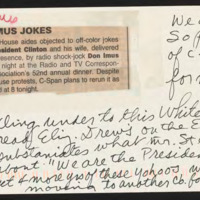 MUS JOKES
House aides objected to off-color jokes
esident Clinton and his wife, delivered
presence, by radio shock-jock Don Imus
ight at the Radio and TV Correspon-
ssociation's 52nd annual dinner. Despite
de protests, C-Span plans to rerun it as
d at 8 tonight.
We a
So
of
for
tling under to this White
read Eliz. Drew's on the E
substantiates what mr. St
about. "We are the Presiden
t & more grs of these yahoos, w
moving to another co. fo